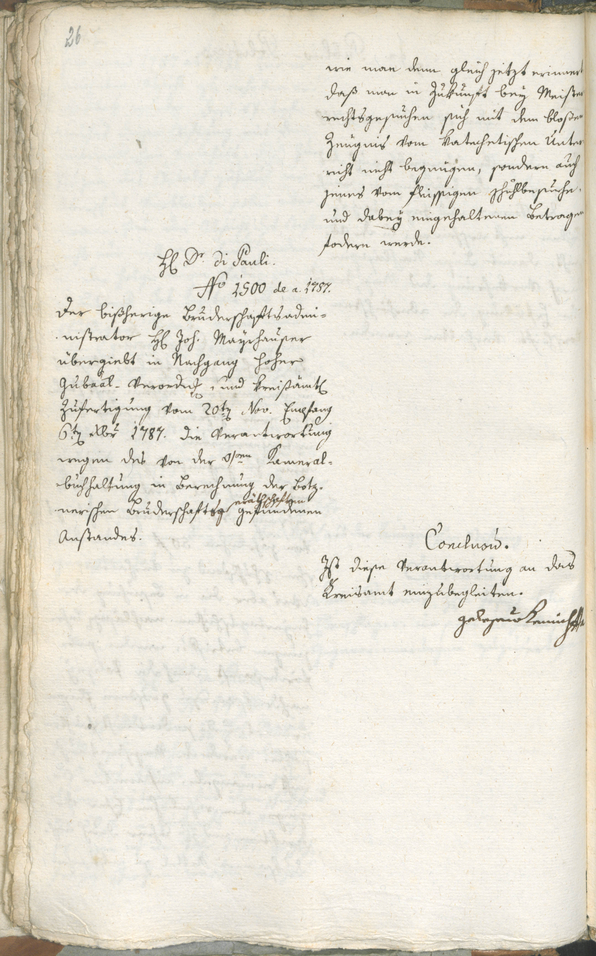 26
wie man denn gleich jetzt erinnert
daß man in Zukunft bey Meister
rechtsgesuchen sich mit dem bloßen
Zeugnis vom Katechetischen Unter
richt nicht begnügen, sondern auch
jenes vom fleissigen Schulbesuche,
und dabey eingehaltenen Betragen
fodern werde.
H. Dr. di Pauli.
No 1500 de a. 1787.
Der bißherige Bruderschaftsadmi-
nistrator H. Joh. Mayrhauser
übergiebt in Nachgang hoher
Gubeal-Verordn. und Kreisämtl
Zufertigung vom 20ten Nov. Empfang
6ten xbr 1787. die Verantwortung
wegen des von der Kameral-
buchhaltung in Berechnung der Botz-
nerischen Bruderschafts gefundenen
Anstandes.
Conclusu.
Ist diese Verantwortung an das
Kreisamt einzubegleiten.